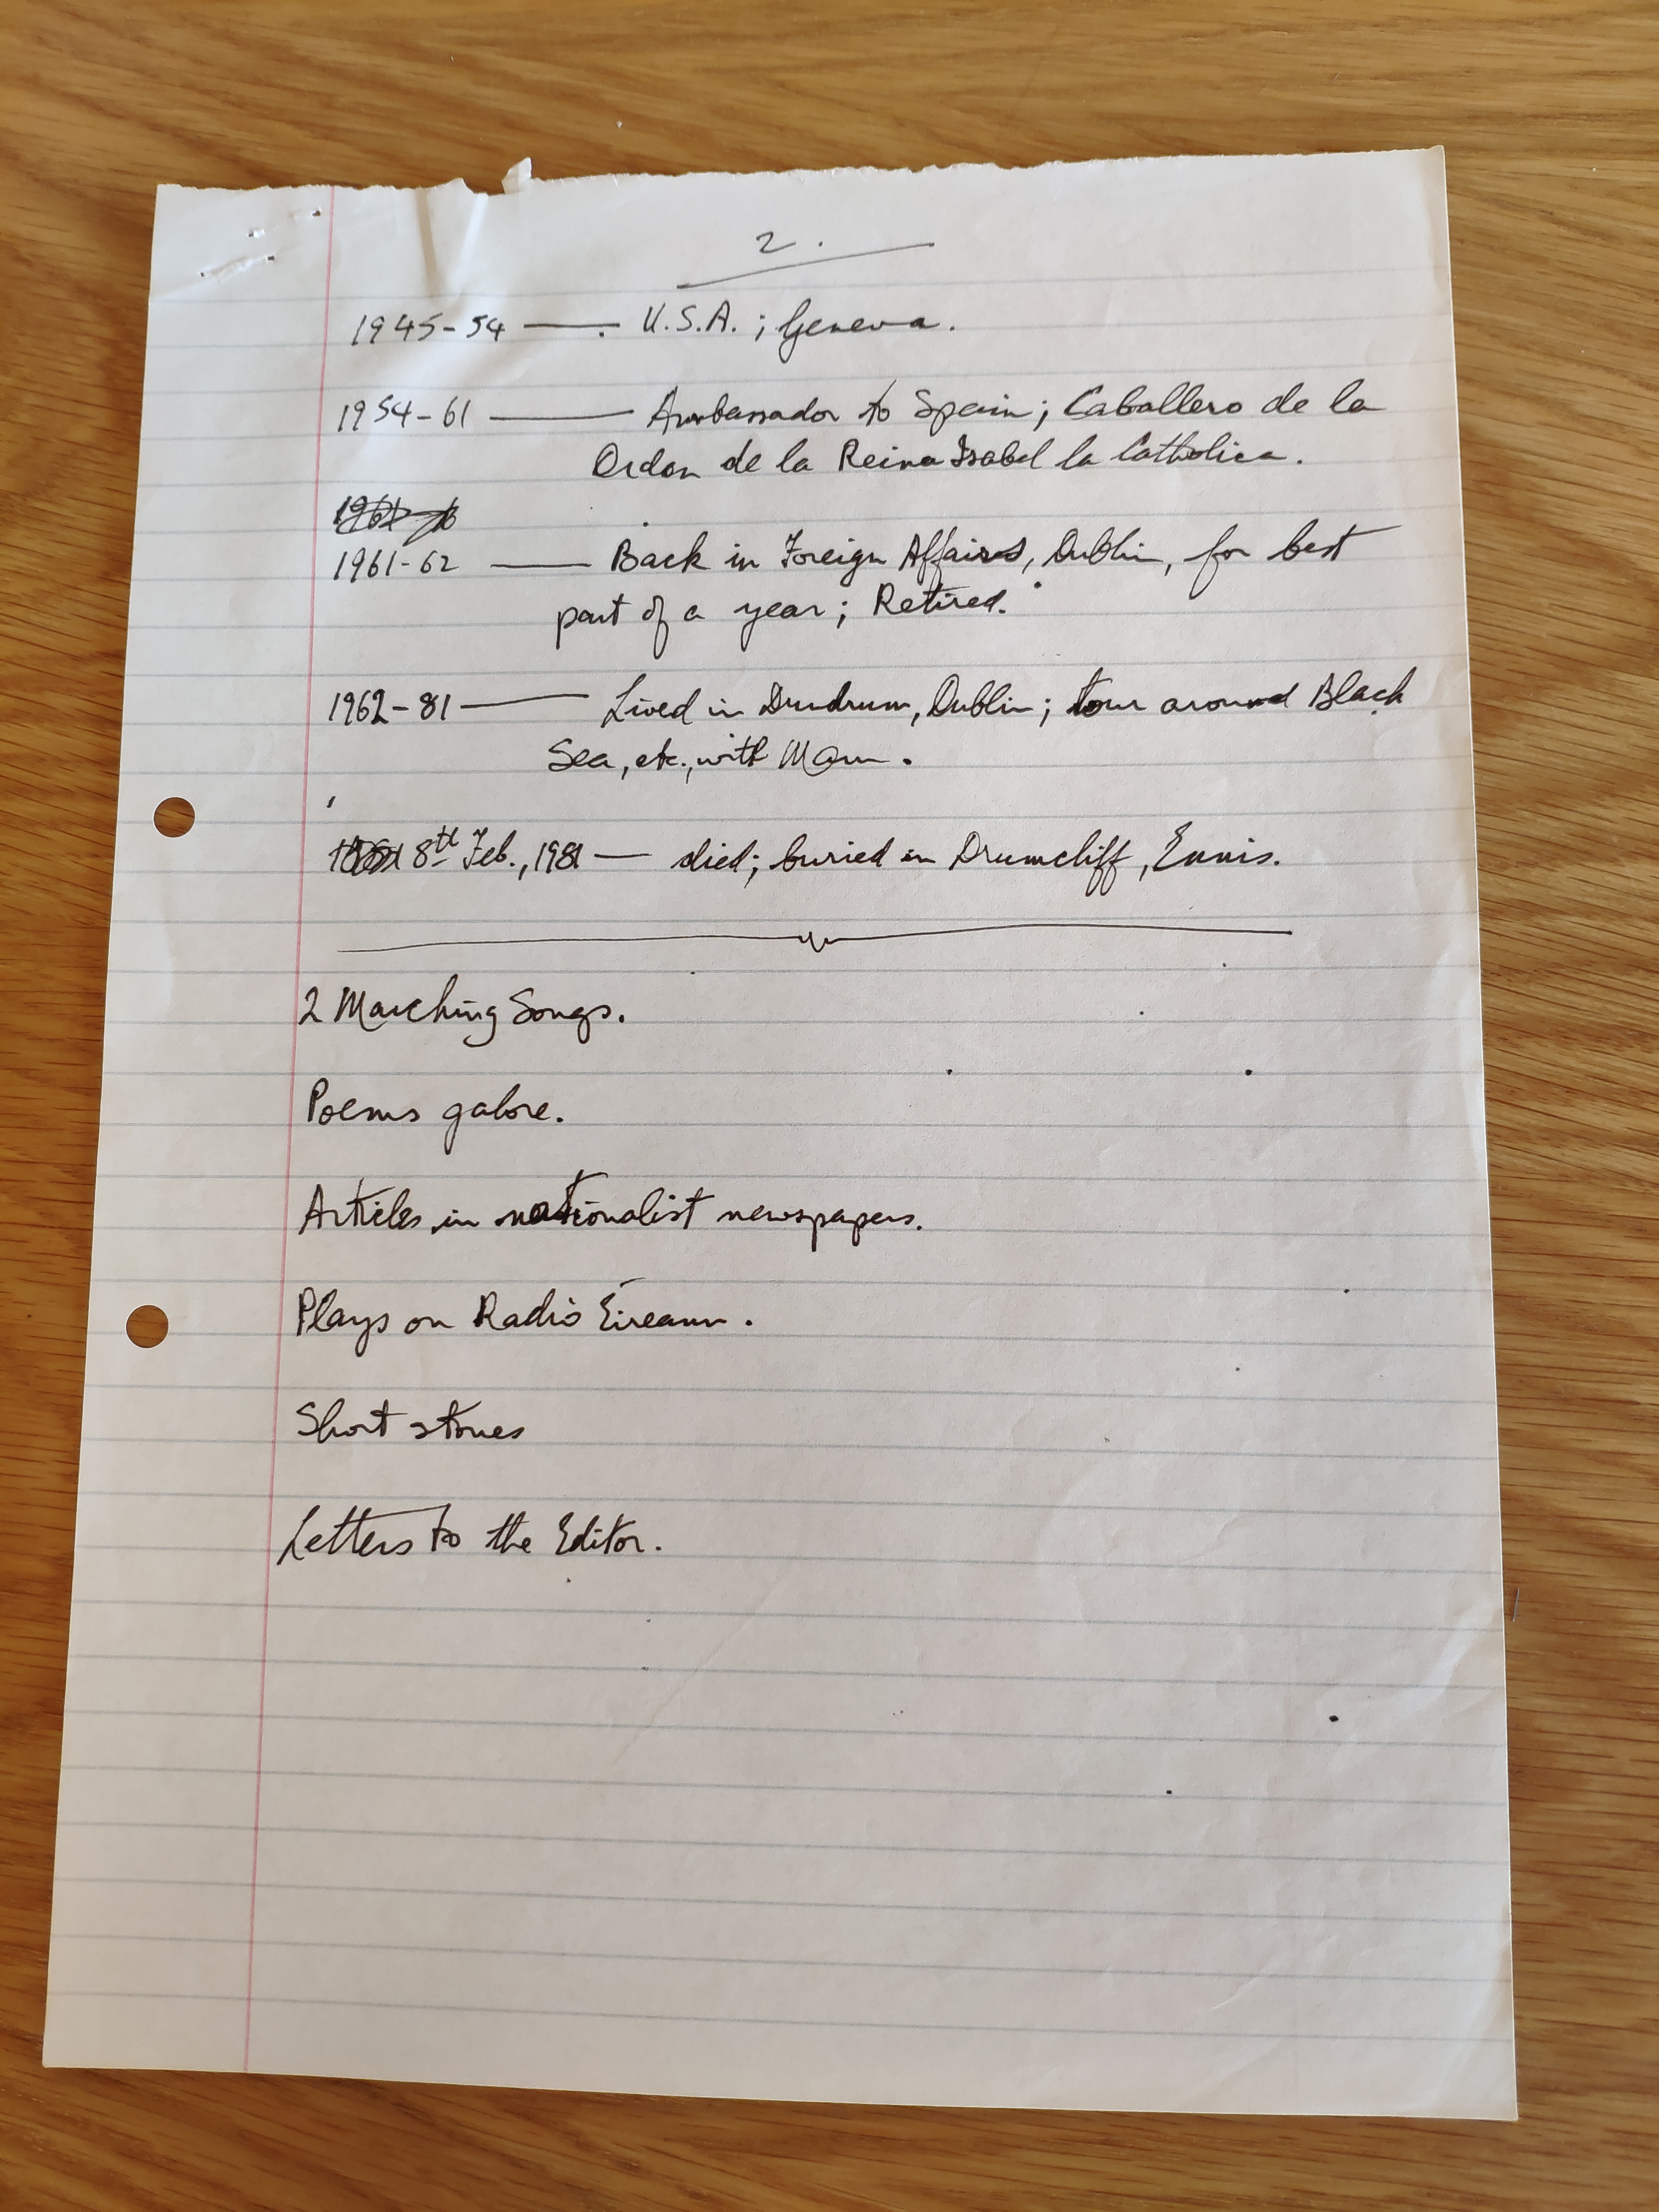 2.
1945-54 — U.S.A.; Geneva.
1954-61 — Ambassador to Spain; Caballero de la
Orden de la Reina Isabel la Catholica.
1961-62 — Back in Foreign Affairs, Dublin, for best
part of a year; Retired.
1962-81 — Lived in Dundrum, Dublin; tour around Black
Sea, etc., with Mam.
8th Feb., 1981 — died; buried in Drumcliff, Ennis.
2 Marching Songs.
Poems galore.
Articles in nationalist newspapers.
Plays on Radio Éireann.
Short stories
Letters to the Editor.